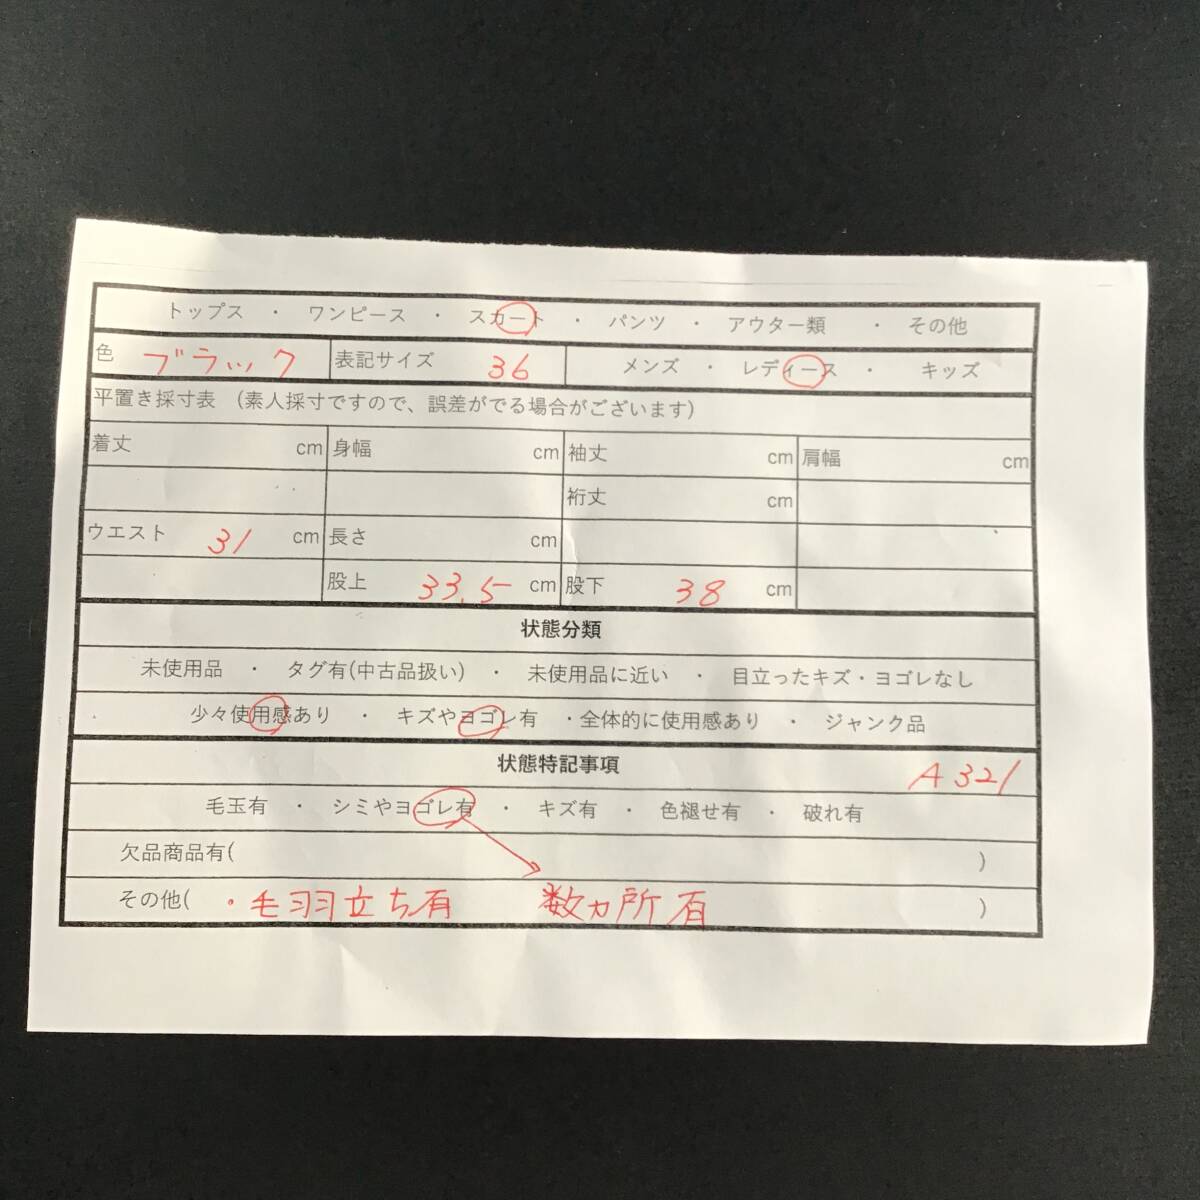 トップス ・ ワンピース ・ スカート ・ パンツ ・ アウター類 ・ その他
色 ブラック 表記サイズ 36 メンズ ・ レディース ・ キッズ
平置き採寸表 (素人採寸ですので、誤差がでる場合がございます)
着丈 cm 身幅 cm 袖丈 cm 肩幅 cm
裄丈 cm
ウエスト 31 cm 長さ cm
股上 33.5 cm 股下 38 cm
状態分類
未使用品 ・ タグ有(中古品扱い) ・ 未使用品に近い ・ 目立ったキズ・ヨゴレなし
少々使用感あり ・ キズやヨゴレ有 ・全体的に使用感あり ・ ジャンク品
状態特記事項 A321
毛玉有 ・ シミやヨゴレ有 ・ キズ有 ・ 色褪せ有 ・ 破れ有
欠品商品有( )
その他( ・毛羽立ち有 数ヵ所有 )